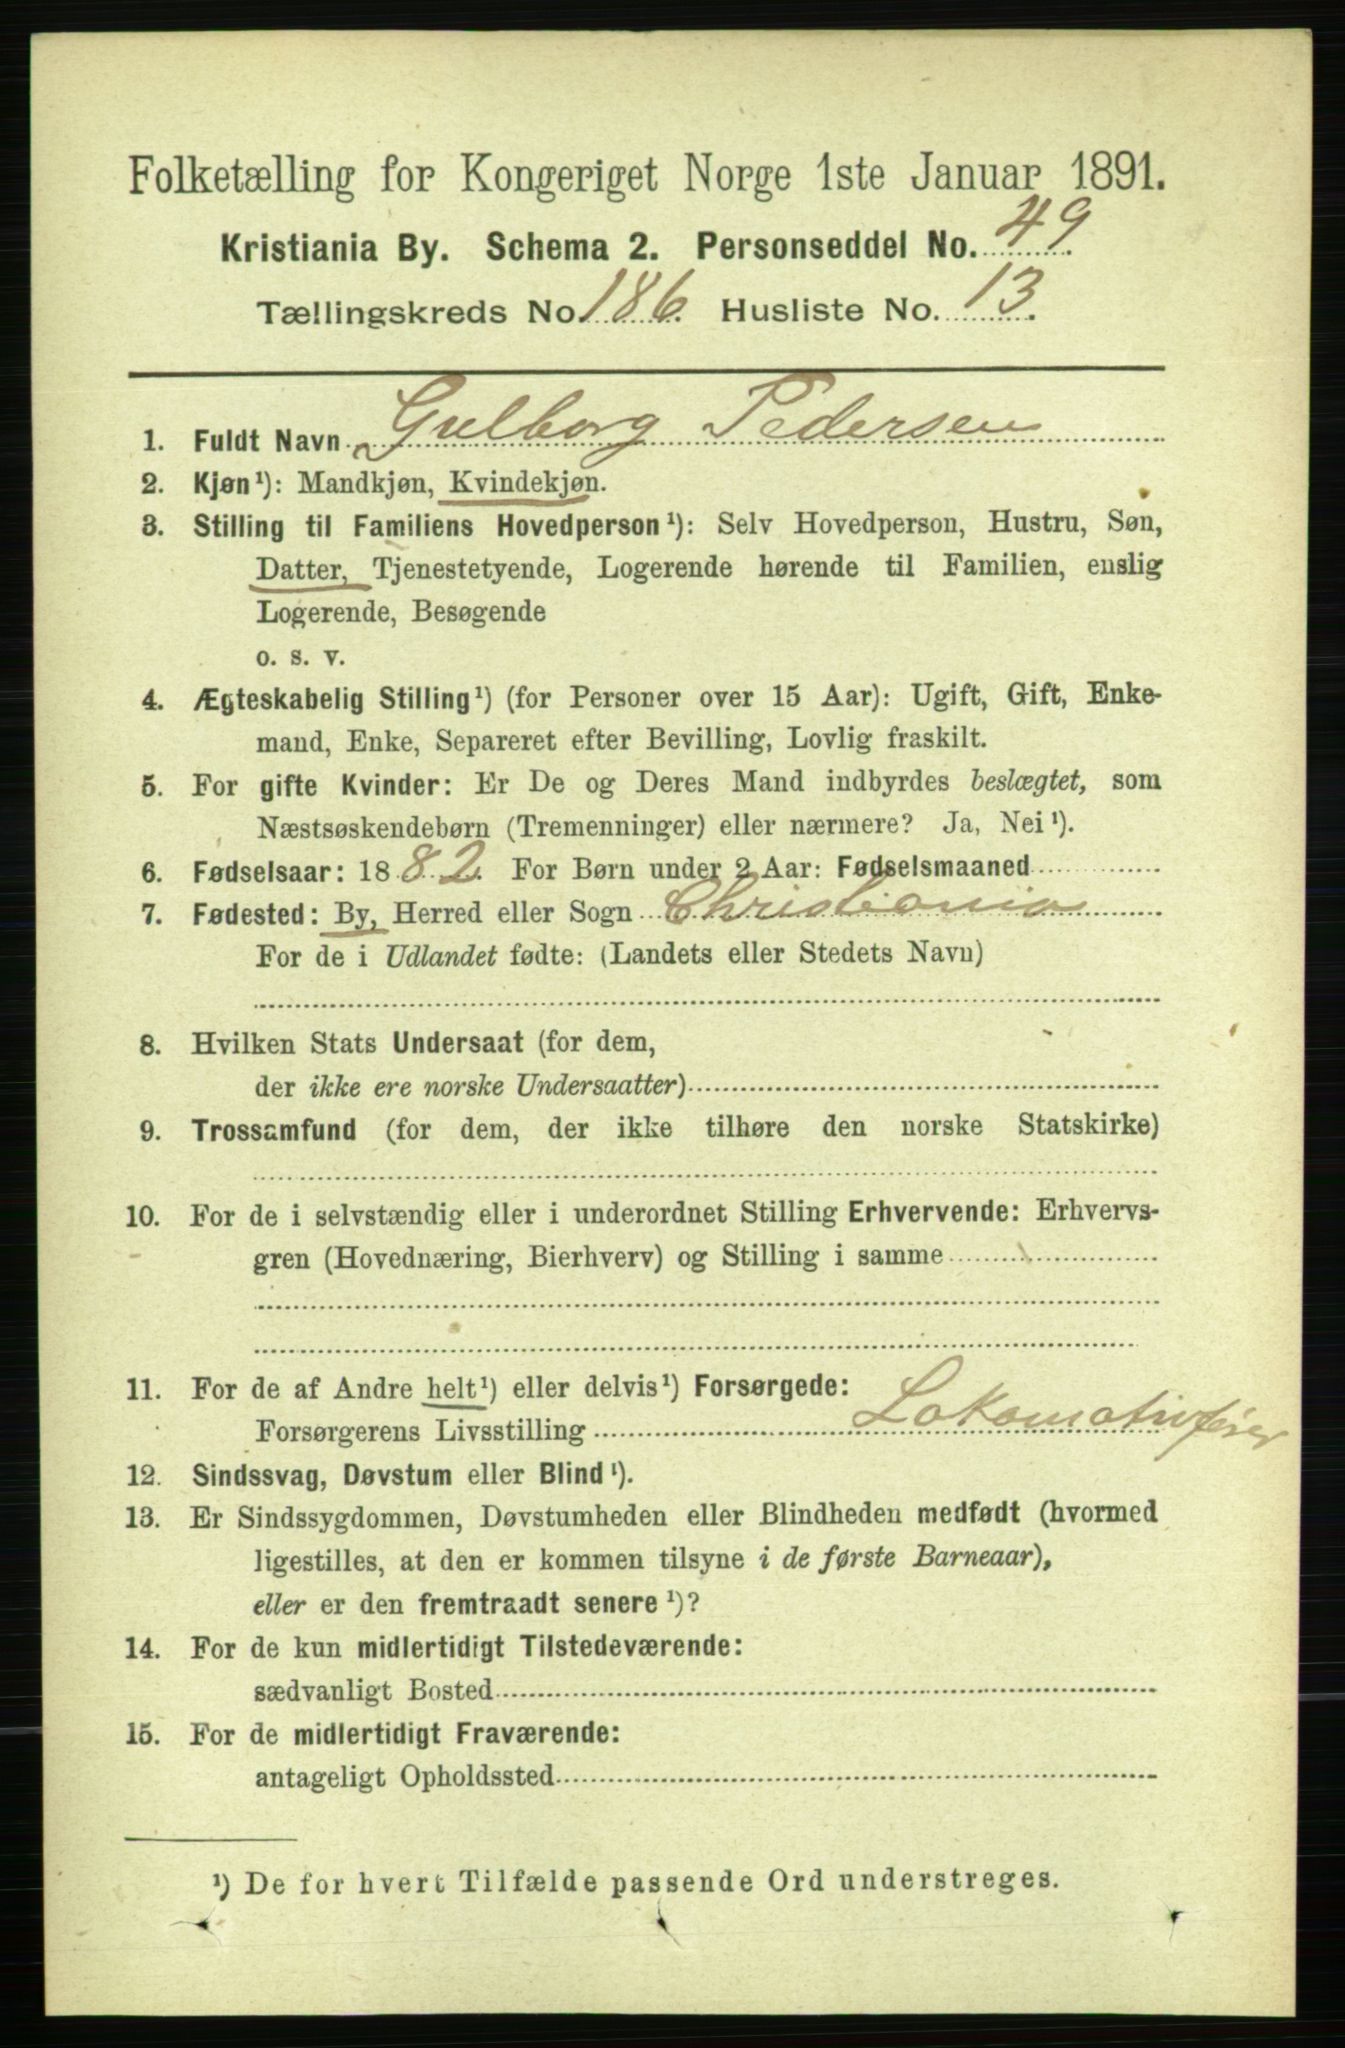 Folketælling for Kongeriget Norge 1ste Januar 1891.
Kristiania By. Schema 2. Personseddel No. 49.
Tællingskreds No. 186. Husliste No. 13.
1. Fuldt Navn Gulborg Pedersen
2. Kjøn¹): Mandkjøn, Kvindekjøn.
3. Stilling til Familiens Hovedperson¹): Selv Hovedperson, Hustru, Søn,
Datter, Tjenestetyende, Logerende hørende til Familien, enslig
Logerende, Besøgende
o. s. v.
4. Ægteskabelig Stilling¹) (for Personer over 15 Aar): Ugift, Gift, Enke-
mand, Enke, Separeret efter Bevilling, Lovlig fraskilt.
5. For gifte Kvinder: Er De og Deres Mand indbyrdes beslægtet, som
Næstsøskendebørn (Tremenninger) eller nærmere? Ja, Nei¹).
6. Fødselsaar: 1882. For Børn under 2 Aar: Fødselsmaaned
7. Fødested: By, Herred eller Sogn Christiania
For de i Udlandet fødte: (Landets eller Stedets Navn)
8. Hvilken Stats Undersaat (for dem,
der ikke ere norske Undersaatter)
9. Trossamfund (for dem, der ikke tilhøre den norske Statskirke)
10. For de i selvstændig eller i underordnet Stilling Erhvervende: Erhvervs-
gren (Hovednæring, Bierhverv) og Stilling i samme
11. For de af Andre helt¹) eller delvis¹) Forsørgede:
Forsørgerens Livsstilling Lokomotivfører
12. Sindssvag, Døvstum eller Blind¹).
13. Er Sindssygdommen, Døvstumheden eller Blindheden medfødt (hvormed
ligestilles, at den er kommen tilsyne i de første Barneaar),
eller er den fremtraadt senere¹)?
14. For de kun midlertidigt Tilstedeværende:
sædvanligt Bosted
15. For de midlertidigt Fraværende:
antageligt Opholdssted
¹) De for hvert Tilfælde passende Ord understreges.